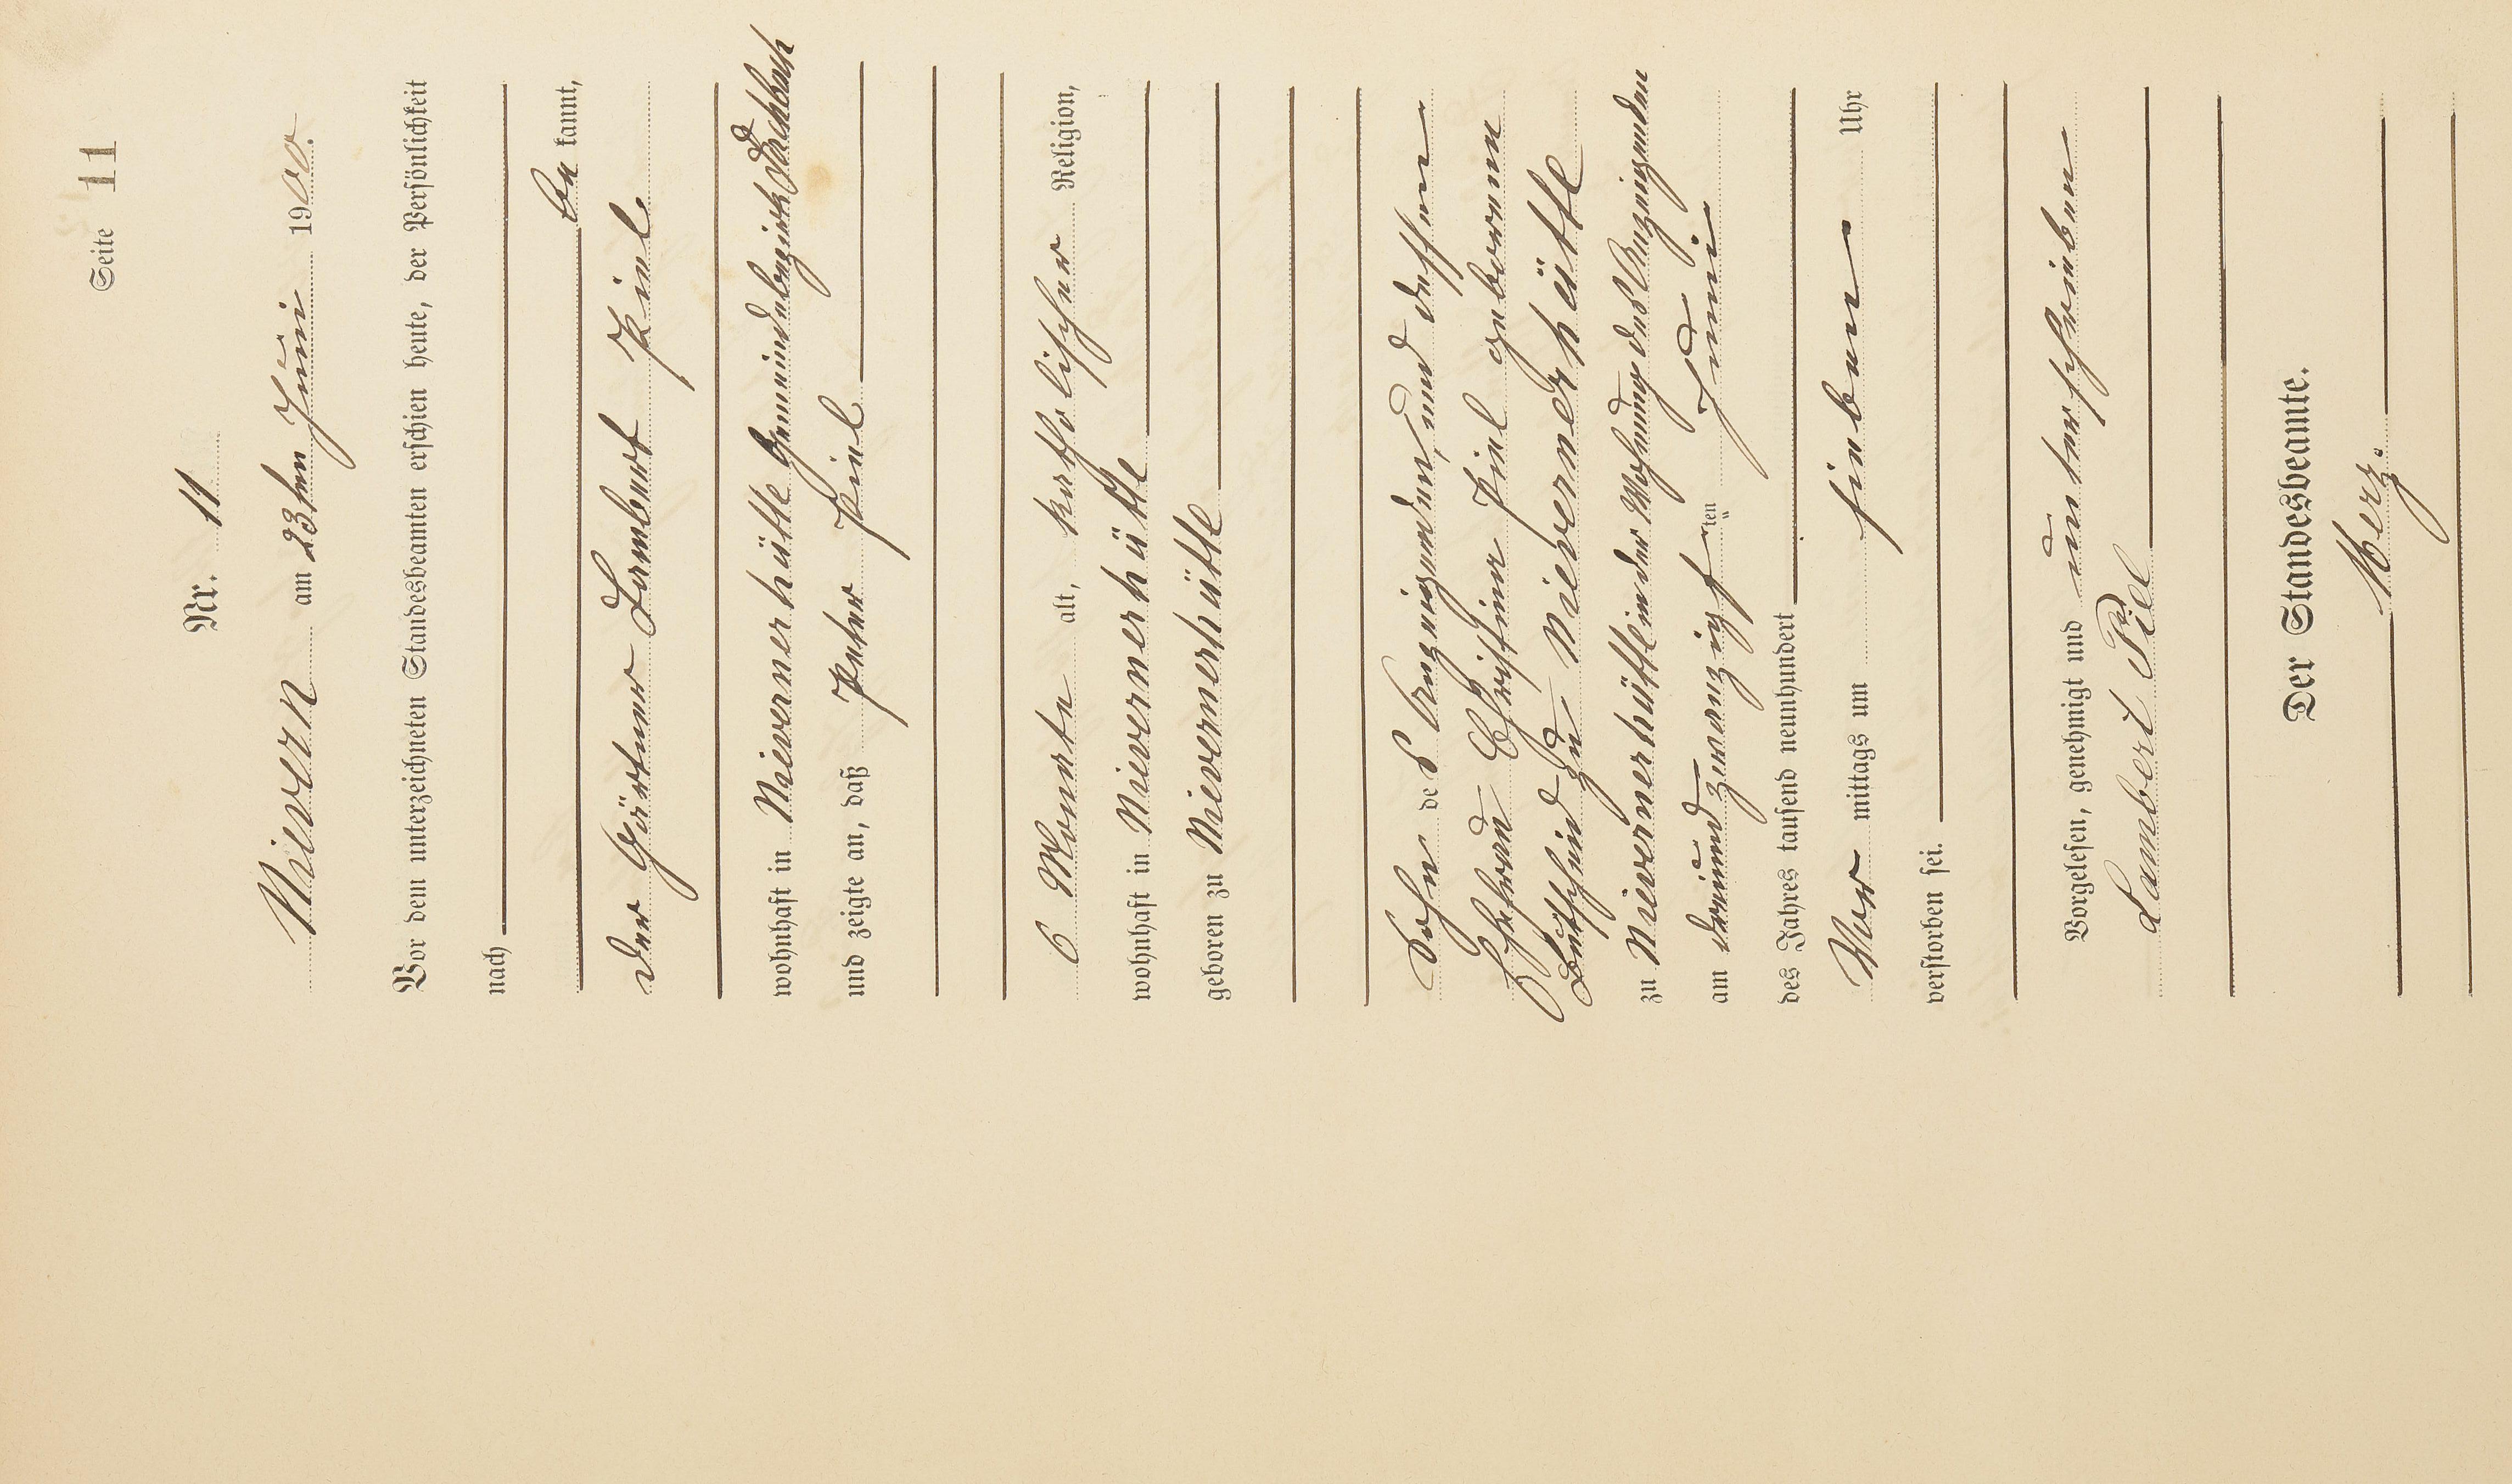 Seite 11
Nr. 11
Nievern am 23ten Juni 1900.
Vor dem unterzeichneten Standesbeamten erschien heute, der Persönlichkeit
nach
be kannt,
der Gärtner Lambert Piel
wohnhaft in Nievernerhütte Gemeindebezirks Dachbach
und zeigte an, daß Peter Piel
6 Monate alt, katholischer Religion,
wohnhaft in Nievernerhütte
geboren zu Nievernerhütte
Sohn des Anzeigenden, und dessen
Ehefrau Christina Piel geborenen
zu Nievernerhütte
zu Nievernerhütte in der Wohnung des Anzeigenden
am dreiundzwanzigsten Juni
des Jahres tausend neunhundert
Vor mittags um sieben Uhr
verstorben sei.
Vorgelesen, genehmigt und unterschrieben
Lambert Piel
Der Standesbeamte.
Herz.